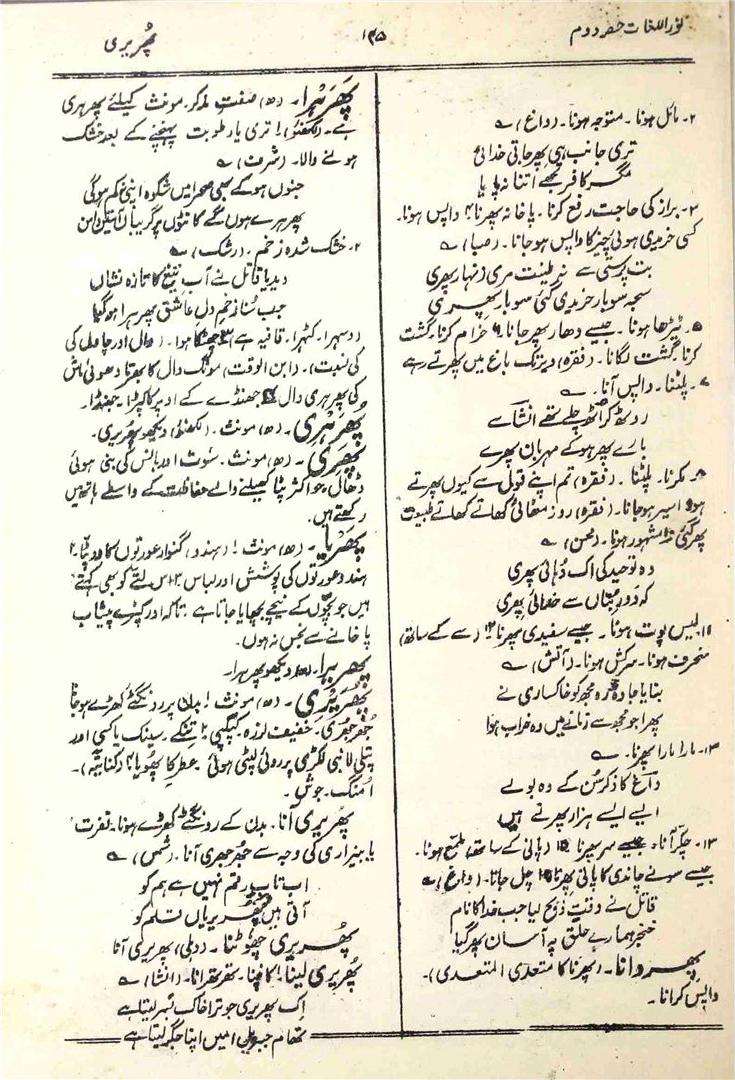 نور اللغات حصہ دوم
۱۴۵
پھریری
۲۔ مائل ہونا ۔ متوجہ ہونا۔ (داغ) ؎
تری جانب ہی پھر جاتی خدائی
مگر کافر تجھے اتنا نہ پایا
۳۔ براز کی حاجت رفع کرنا ۔ پاخانہ پھرنا ۴ واپس ہونا۔
کسی خریدی ہوئی چیز کا واپس ہو جانا ۔ (صبا) ؎
بت پرستی سے نہ طینت مری زنہار پھری
سبحہ سو بار خریدی گئی سو بار پھری
۵۔ ٹیڑھا ہونا ۔ جیسے دھار پھر جانا ۶ خرام کرنا۔ گشت
کرنا۔ گشت لگانا۔ (فقرہ) دیر تک باغ میں پھرتے رہے
۷۔ پلٹنا ۔ واپس آنا ۔ ؎
روٹھ کر اٹھ چلے تھے انشا سے
بارے پھر ہو کے مہربان پھرے
۸۔ مکرنا۔ پلٹنا ۔ (فقرہ) تم اپنے قول سے کیوں پھرتے
ہو ۹ سیر ہو جانا ۔ (فقرہ) روز مٹھائی کھاتے کھاتے طبیعت
پھر گئی ۱۰ مشہور ہونا ۔ (محسن) ؎
وہ توحید کی اک دہائی پھری
کہ دور بتاں سے خدائی پھری
۱۱۔ لیس پوت ہونا ۔ جیسے سفیدی پھرنا ۱۲ (سے کے ساتھ)
منحرف ہونا۔ سرکش ہونا ۔ (آتش) ؎
بنایا جادۂ رہ مجھ کو خاکساری نے
پھرا جو مجھ سے زمانے میں وہ خراب ہوا
۱۳۔ مارا مارا پھرنا ۔ ؎
داغ کا ذکر سن کے وہ بولے
ایسے ایسے ہزار پھرتے ہیں
۱۴۔ چکر آنا۔ جیسے سر پھرنا ۱۵ (پانی کے ساتھ) ملمع ہونا۔
جیسے سونے چاندی کا پانی پھرنا ۱۶ چل جانا۔ (داغ) ؎
قاتل نے وقت ذبح لیا جب خدا کا نام
خنجر ہمارے حلق پہ آسان پھر گیا
پھروانا۔ (پھرنا کا متعدی المتعدی)۔
واپس کرانا ۔
پھرہرا۔ (ھ) صفت مذکر۔ مونث کیلئے پھرہری
ہے۔ (لکھنؤ) ۱ تری یا رطوبت پہنچنے کے بعد خشک
ہونے والا۔ (شرف) ؎
جنوں ہو کے بھی صحرا میں شکوہ اپنی کم ہوگی
پھرہرے ہوں گے کانٹوں پر گریباں آستین دامن
۲۔ خشک شدہ زخم ۔ (رشک) ؎
دیدیا قاتل نے آب تیغ کا تازہ نشاں
جب سنا زخم دل عاشق پھرہرا ہو گیا
(دسہرا۔ کٹہرا۔ قافیہ ہے) ۳ چھٹکا ہوا۔ (دال اور چاول کی
نسبت)۔ (ابن الوقت) مونگ دال کا بھرتا دھوئی ماش
کی پھرہری دال ۴ جھنڈے کے اوپر کا کپڑا۔ جھنڈا۔
پھرہری ۔ (ھ) مونث۔ (لکھنؤ) دیکھو پھریری۔
پھری ۔ (ھ) مونث۔ سوت اور بانس کی بنی ہوئی
ڈھال جو اکثر پٹا کھیلنے والے حفاظت کے واسطے ہاتھ میں
رکھتے ہیں۔
پھریا ۔ (ھ) مونث ۱ (ہندو) گنوار عورتوں کا دوپٹہ ۲
ہندو عورتوں کی پوشش اور لباس ۳ اس لتے کو بھی کہتے
ہیں جو بچوں کے نیچے بچھایا جاتا ہے تاکہ اور کپڑے پیشاب
پاخانے سے نجس نہ ہوں۔
پھریرا۔ (ھ) دیکھو پھرہرا۔
پھریری ۔ (ھ) مونث ۱ بدن پر رونگٹے کھڑے ہو جانا
جھرجھری۔ خفیف لرزہ۔ کپکپی ۲ تنکے۔ سینک یا کسی اور
پتلی لانبی لکڑی پر روئی لپٹی ہوئی ۳ عطر کا پھویا ۴ (کنایۃً)۔
امنگ۔ جوش ۔
پھریری آنا۔ بدن کے رونگٹے کھڑے ہونا۔ نفرت
یا بیزاری کی وجہ سے جھرجھری آنا۔ (شمس) ؎
اب تاب رقم نہیں ہے ہم کو
آتی ہیں پھریریاں قلم کو
پھریری چھوٹنا ۔ (دہلی) پھریری آنا
پھریری لینا ۱ کانپنا ۔ تھرتھرانا ۔ (انشا) ؎
اک پھریری جو ترا خاک بسر لیتا ہے
تھام جبریل امیں اپنا جگر لیتا ہے